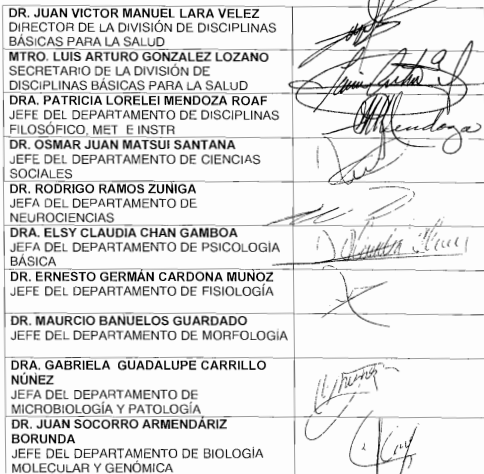 DR. JUAN VICTOR MANUEL LARA VELEZ
DIRECTOR DE LA DIVISIÓN DE DISCIPLINAS
BÁSICAS PARA LA SALUD
MTRO. LUIS ARTURO GONZALEZ LOZANO
SECRETARIO DE LA DIVISIÓN DE
DISCIPLINAS BÁSICAS PARA LA SALUD
DRA. PATRICIA LORELEI MENDOZA ROAF
JEFE DEL DEPARTAMENTO DE DISCIPLINAS
FILOSÓFICO, MET E INSTR
DR. OSMAR JUAN MATSUI SANTANA
JEFE DEL DEPARTAMENTO DE CIENCIAS
SOCIALES
DR. RODRIGO RAMOS ZUÑIGA
JEFA DEL DEPARTAMENTO DE
NEUROCIENCIAS
DRA. ELSY CLAUDIA CHAN GAMBOA
JEFA DEL DEPARTAMENTO DE PSICOLOGÍA
BÁSICA
DR. ERNESTO GERMÁN CARDONA MUÑOZ
JEFE DEL DEPARTAMENTO DE FISIOLOGÍA
DR. MAURCIO BAÑUELOS GUARDADO
JEFE DEL DEPARTAMENTO DE MORFOLOGÍA
DRA. GABRIELA GUADALUPE CARRILLO
NÚÑEZ
JEFA DEL DEPARTAMENTO DE
MICROBIOLOGÍA Y PATOLOGÍA
DR. JUAN SOCORRO ARMENDÁRIZ
BORUNDA
JEFE DEL DEPARTAMENTO DE BIOLOGÍA
MOLECULAR Y GENÓMICA